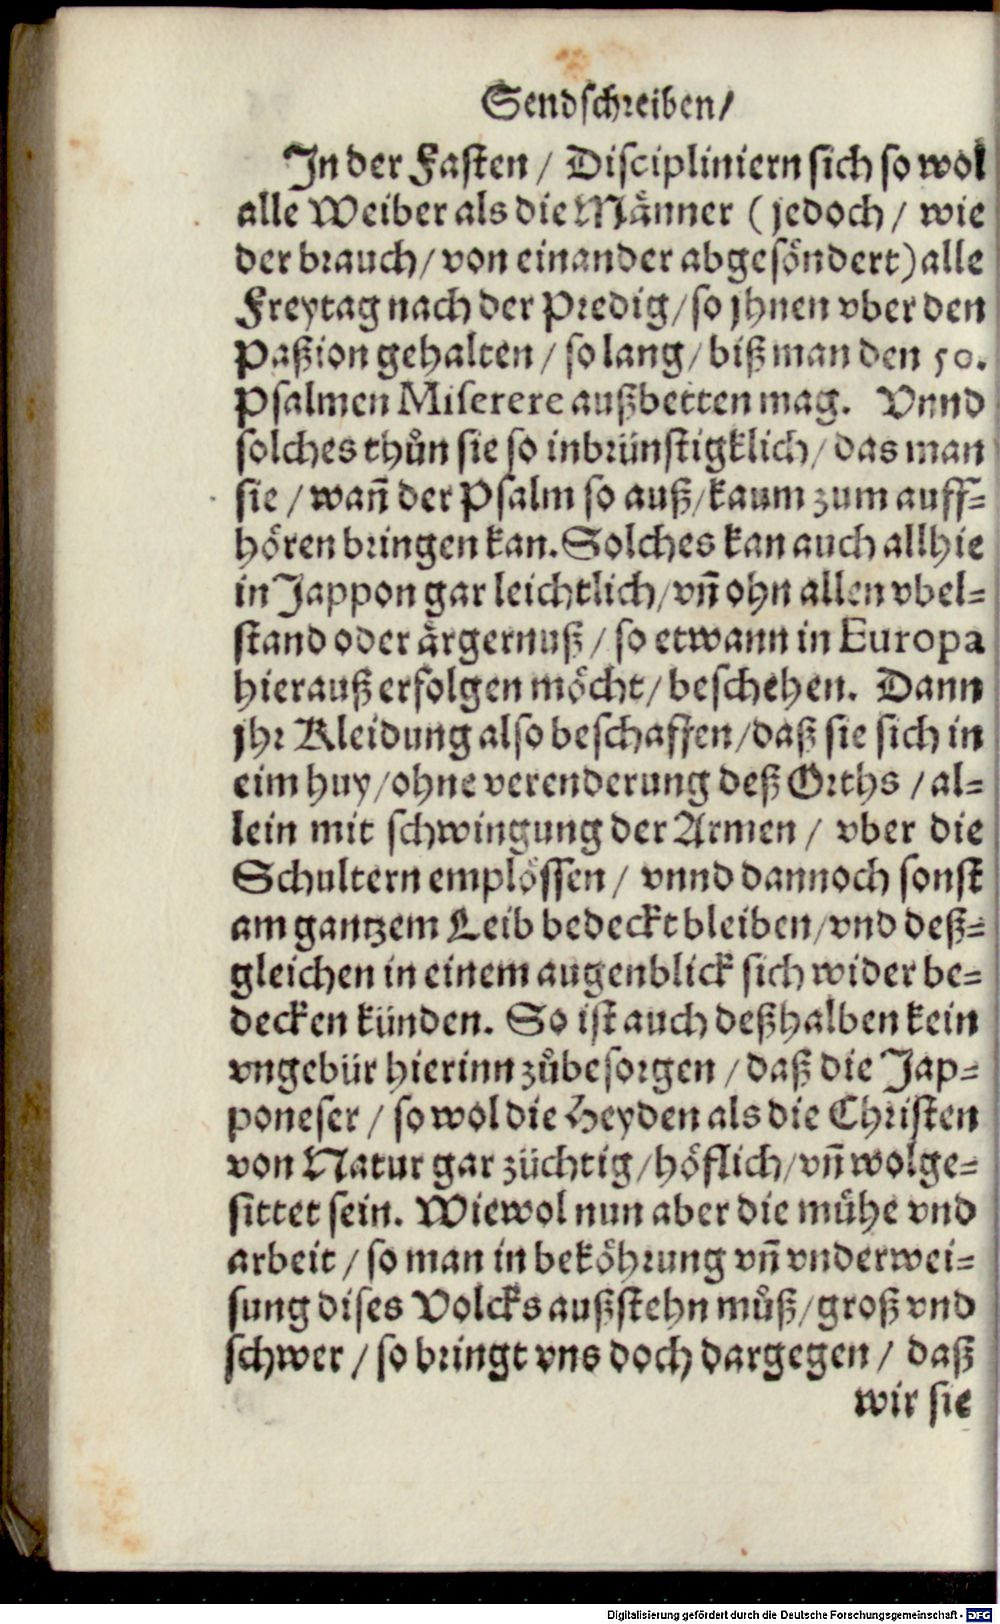 Sendschreiben/
In der Fasten / Discipliniern sich so wol
alle Weiber als die Männer (jedoch/ wie
der brauch/ von einander abgesöndert) alle
Freytag nach der Predig/ so jhnen vber den
Paßion gehalten / so lang/ biß man den 50.
Psalmen Miserere außbetten mag. Vnnd
solches thůn sie so inbrünstigklich/ das man
sie / wañ der Psalm so auß/ kaum zum auff-
hören bringen kan. Solches kan auch allhie
in Jappon gar leichtlich/ vñ ohn allen vbel-
stand oder ärgernuß / so etwann in Europa
hierauß erfolgen möcht/ beschehen. Dann
jhr Kleidung also beschaffen/ daß sie sich in
eim huy/ ohne verenderung deß Orths / al-
lein mit schwingung der Armen / vber die
Schultern emplössen/ vnnd dannoch sonst
am gantzem Leib bedeckt bleiben/ vnd deß-
gleichen in einem augenblick sich wider be-
decken künden. So ist auch deßhalben kein
vngebür hierinn zůbesorgen / daß die Jap-
poneser / so wol die Heyden als die Christen
von Natur gar züchtig/ höflich/ vñ wolge-
sittet sein. Wiewol nun aber die mühe vnd
arbeit / so man in beköhrung vñ vnderwei-
sung dises Volcks außstehn můß/ groß vnd
schwer / so bringt vns doch dargegen / daß
wir sie
Digitalisierung gefördert durch die Deutsche Forschungsgemeinschaft - DFG